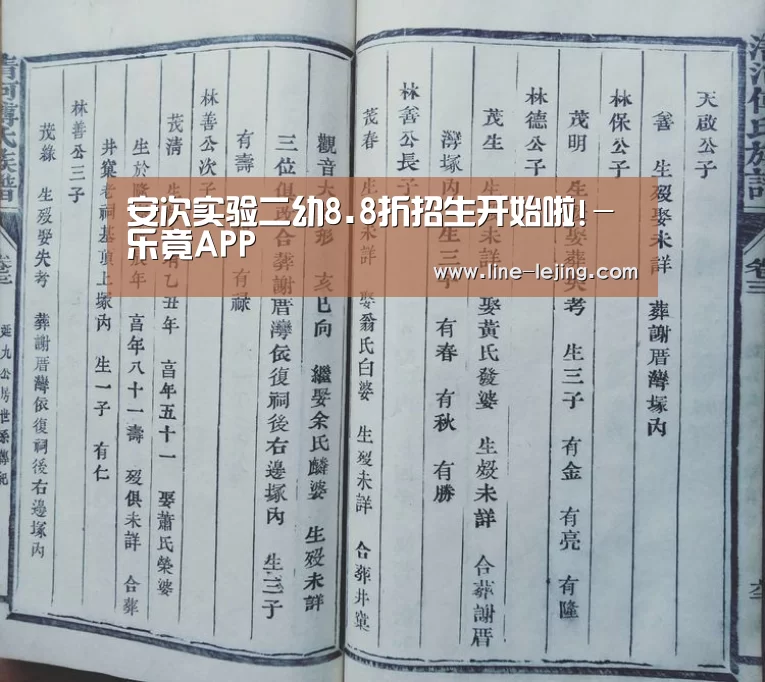 天啟公子
善 生殁娶未詳 葬謝厝灣塚內
林保公子
茂明 生 娶葬 考 生三子 有金 有亮 有隆
林德公子
茂生 生 未詳 娶黃氏發婆 生殁未詳 合葬謝厝
灣塚內 生三子 有春 有秋 有勝
林善公長子
茂春 生 未詳 娶翁氏白婆 生殁未詳 合葬井窠
觀音大 形 亥巳向 繼娶余氏麟婆 生殁未詳
三位俱 合葬謝厝灣依復祠後右邊塚內 生三子
有壽 有祿
林善公次子
茂清 生 乙丑年 享年五十一 娶蕭氏榮婆
生於 年 享年八十一壽 殁俱未詳 合葬
井窠老祠基頂上塚內 生一子 有仁
林善公三子
茂綠 生殁娶失考 葬謝厝灣依復祠後右邊塚內
清河傅氏族譜
卷三
延九公房世系傳紀
安次实验二幼8.8折招生开始啦!-
乐竟APP
www.line-lejing.com